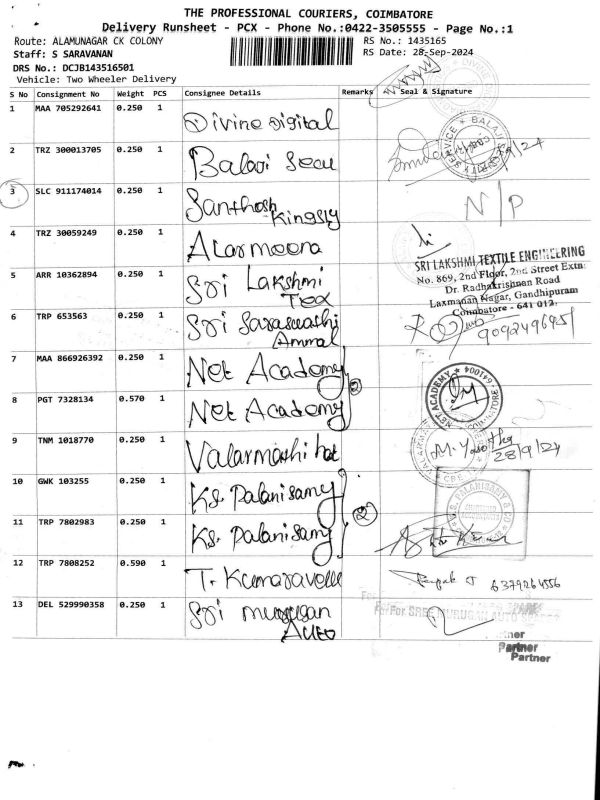 THE PROFESSIONAL COURIERS, COIMBATORE
Delivery Runsheet - PCX - Phone No.:0422-3505555 - Page No.:1
Route: ALAMUNAGAR CK COLONY RS No.: 1435165
Staff: S SARAVANAN RS Date: 28-Sep-2024
DRS No.: DCJB143516501
Vehicle: Two Wheeler Delivery
S No Consignment No Weight PCS Consignee Details Remarks Seal & Signature
1 MAA 705292641 0.250 1 Divine Digital
2 TRZ 300013705 0.250 1 Balaji Secu
3 SLC 911174014 0.250 1 Santhosh Kingsly N/P
4 TRZ 30059249 0.250 1 Alarmoora
5 ARR 10362894 0.250 1 Sri Lakshmi Tex
SRI LAKSHMI TEXTILE ENGINEERING
No. 869, 2nd Floor, 2nd Street Extn
Dr. Radhakrishnan Road
Laxmanan Nagar, Gandhipuram
Coimbatore - 641 012.
6 TRP 653563 0.250 1 Sri Saraswathi Ammal
7 MAA 866926392 0.250 1 Net Academy
8 PGT 7328134 0.570 1 Net Academy
NET ACADEMY COIMBATORE 641004
9 TNM 1018770 0.250 1 Valarmathi hot 28/9/24
10 GWK 103255 0.250 1 KS. Palanisamy
11 TRP 7802983 0.250 1 KS. Palanisamy
2
12 TRP 7808252 0.590 1 T. Kumaravelu 6379264556
13 DEL 529990358 0.250 1 Sri murugan Auto
For SREE MURUGAN AUTO
Partner
Partner